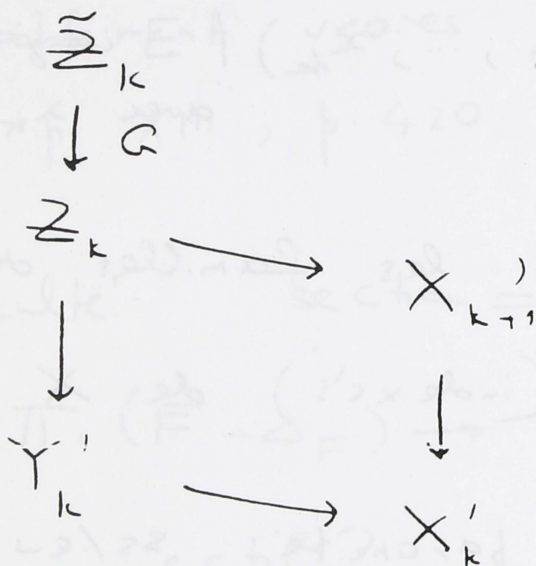 Z̃_k
↓ G
Z_k → X'_{k+1}
↓ ↓
Y'_k → X'_k